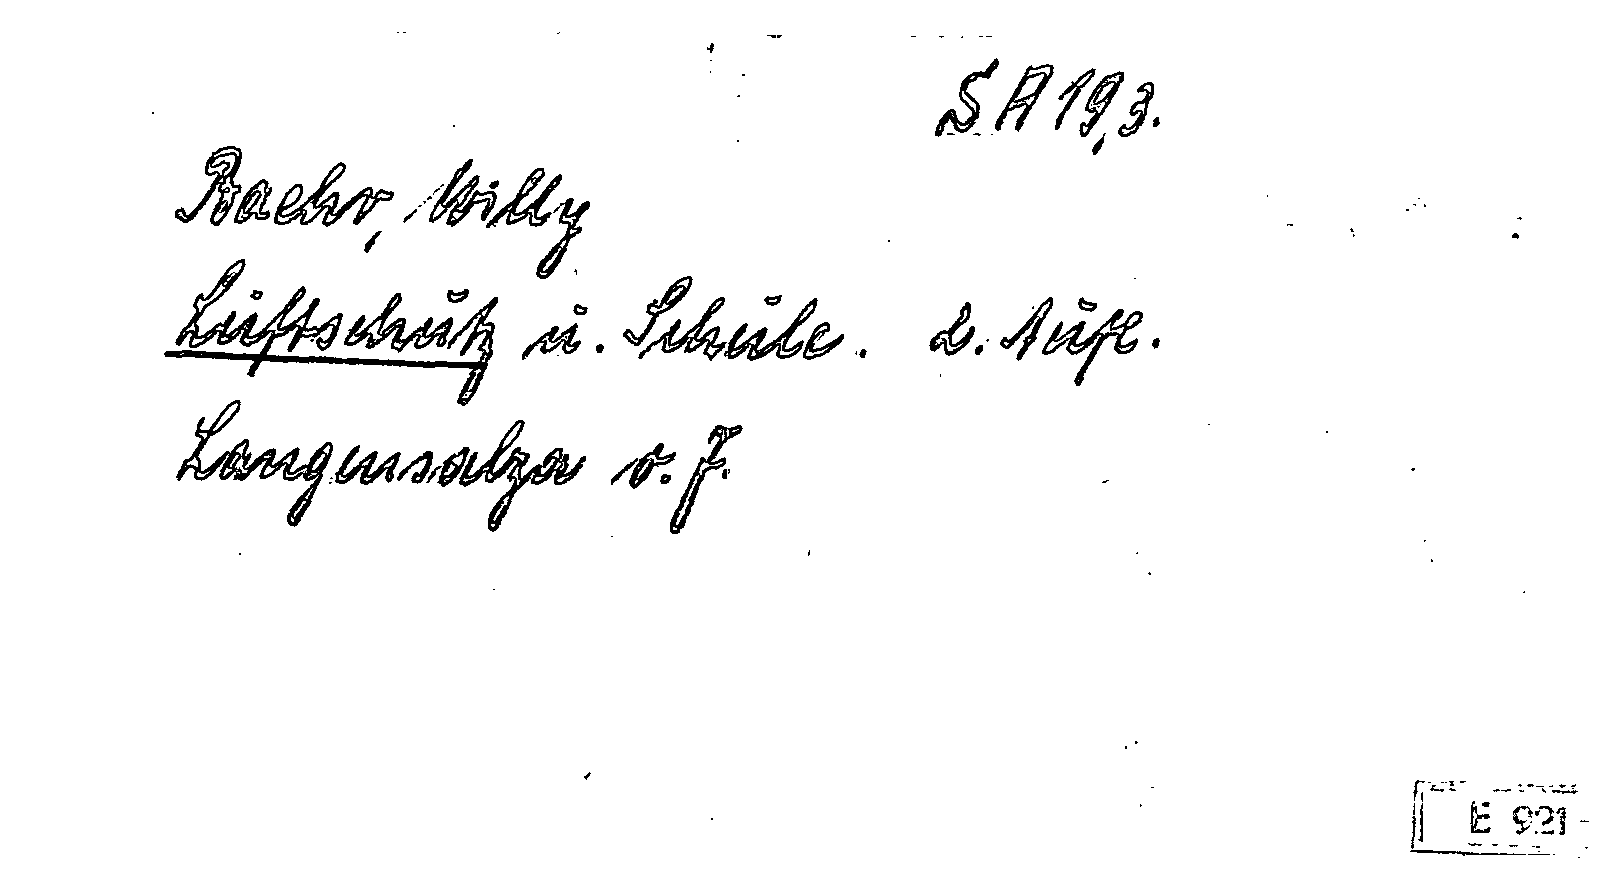 S A 19,3.
Baehr, Willy
Luftschutz u. Schule. 2. Aufl.
Langensalza o. J.
E 921